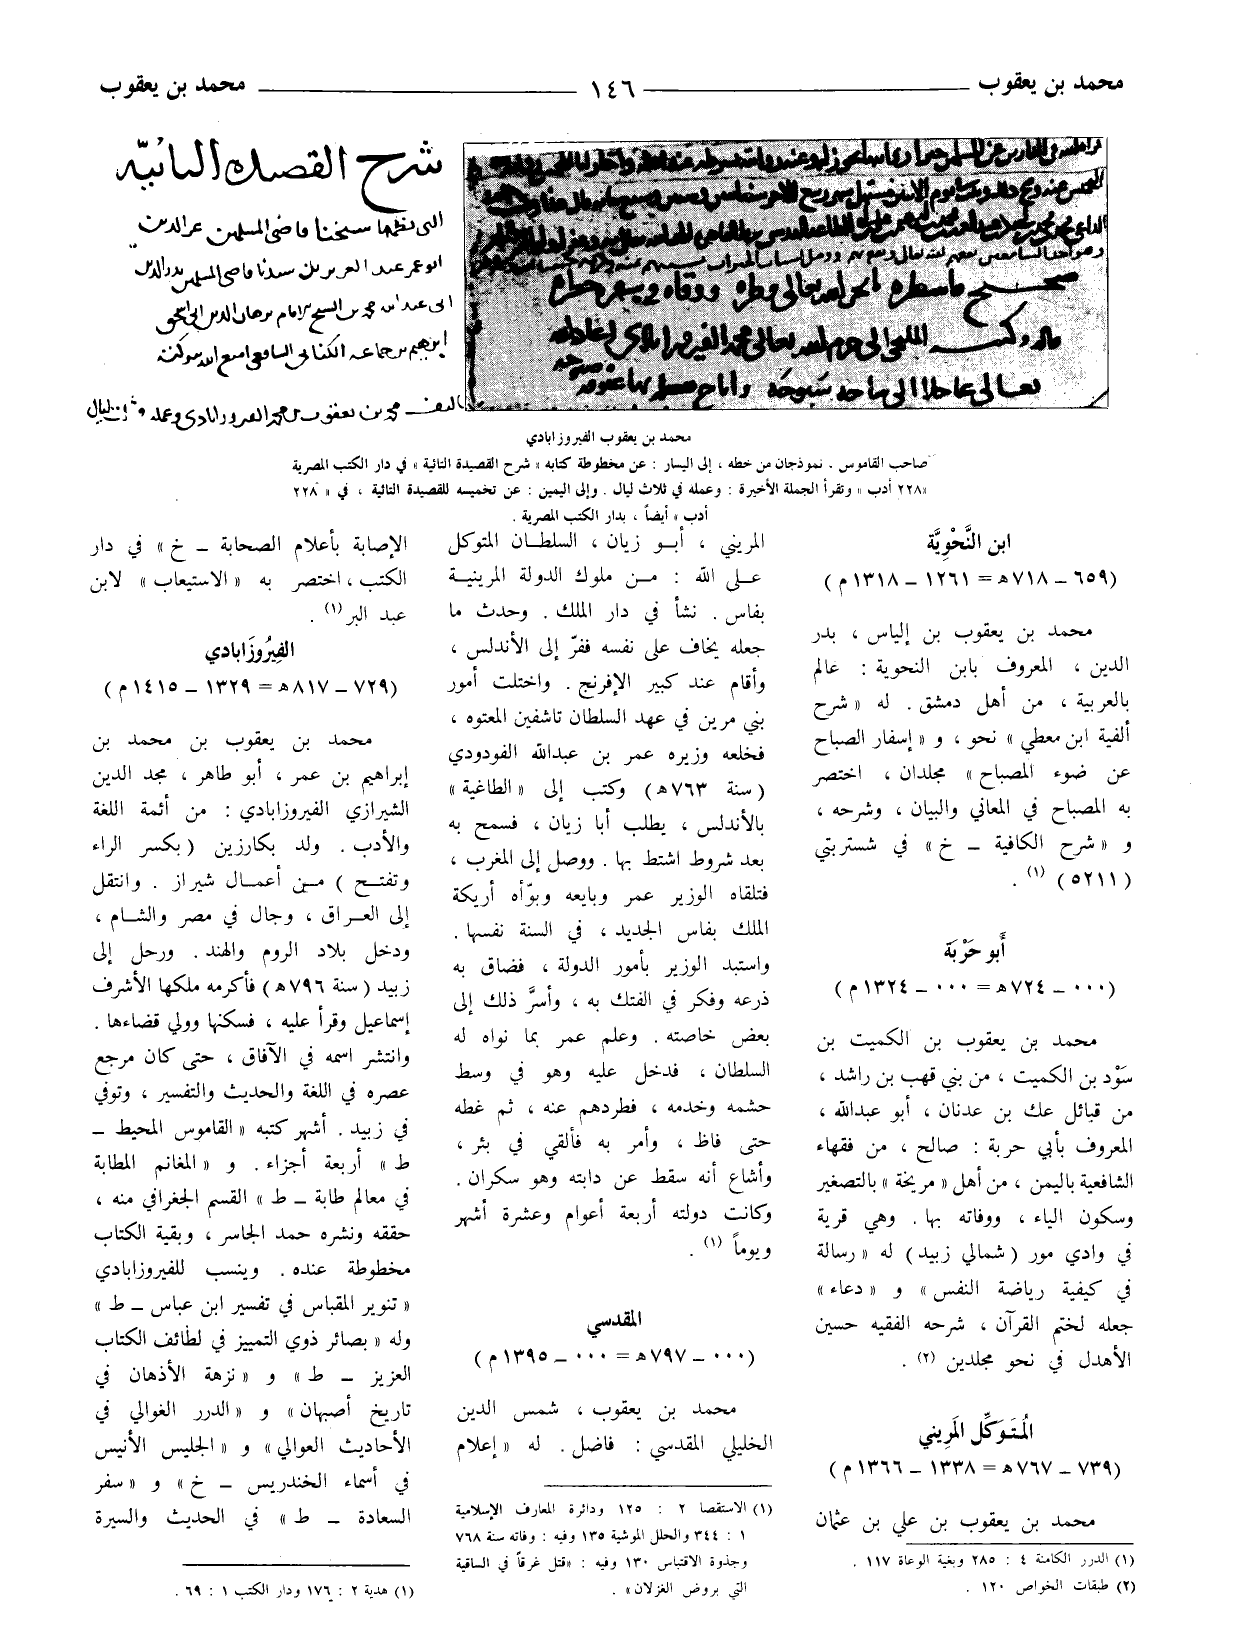 محمد بن يعقوب ١٤٦ محمد بن يعقوب
شرح القصيدة التائية
التي نظمها شيخنا قاضي المسلمين عز الدين
ابو عمر عبد العزيز بن سيدنا قاضي المسلمين بدر الدين
محمد بن يعقوب الفيروزابادي
صاحب القاموس . نموذجان من خطه ، إلى اليسار : عن مخطوطة كتابه « شرح القصيدة التائية » في دار الكتب المصرية
« ٢٢٨ أدب » وتقرأ الجملة الأخيرة : وعمله في ثلاث ليال . وإلى اليمين : عن تخميسه للقصيدة التائية ، في « ٢٢٨
أدب » أيضاً ، بدار الكتب المصرية .
ابن النَّحْوِيَّة
(٦٥٩ ــ ٧١٨هـ = ١٢٦١ ــ ١٣١٨ م)
محمد بن يعقوب بن إلياس ، بدر
الدين ، المعروف بابن النحوية : عالم
بالعربية ، من أهل دمشق . له « شرح
ألفية ابن معطي » نحو ، و « إسفار الصباح
عن ضوء المصباح » مجلدان ، اختصر
به المصباح في المعاني والبيان ، وشرحه ،
و « شرح الكافية ــ خ » في شستربتي
(٥٢١١) (١) .
أَبو حَرْبَة
(٠٠٠ ــ ٧٢٤هـ = ٠٠٠ ــ ١٣٢٤ م)
محمد بن يعقوب بن الكميت بن
سَوْد بن الكميت ، من بني قهب بن راشد ،
من قبائل عك بن عدنان ، أبو عبدالله ،
المعروف بأبي حربة : صالح ، من فقهاء
الشافعية باليمن ، من أهل « مريخة » بالتصغير
وسكون الياء ، ووفاته بها . وهي قرية
في وادي مور (شمالي زبيد) له « رسالة
في كيفية رياضة النفس » و « دعاء »
جعله لختم القرآن ، شرحه الفقيه حسين
الأهدل في نحو مجلدين (٢) .
المُتَوَكِّل المَرِيني
(٧٣٩ ــ ٧٦٧هـ = ١٣٣٨ ــ ١٣٦٦ م)
محمد بن يعقوب بن علي بن عثمان
(١) الدرر الكامنة ٤ : ٢٨٥ وبغية الوعاة ١١٧ .
(٢) طبقات الخواص ١٢٠ .
المريني ، أبو زيان ، السلطان المتوكل
على الله : من ملوك الدولة المرينية
بفاس . نشأ في دار الملك . وحدث ما
جعله يخاف على نفسه ففرّ إلى الأندلس ،
وأقام عند كبير الإفرنج . واختلت أمور
بني مرين في عهد السلطان تاشفين المعتوه ،
فخلعه وزيره عمر بن عبدالله الفودودي
(سنة ٧٦٣هـ) وكتب إلى « الطاغية »
بالأندلس ، يطلب أبا زيان ، فسمح به
بعد شروط اشتط بها . ووصل إلى المغرب ،
فتلقاه الوزير عمر وبايعه وبوّأه أريكة
الملك بفاس الجديد ، في السنة نفسها .
واستبد الوزير بأمور الدولة ، فضاق به
ذرعه وفكر في الفتك به ، وأسرَّ ذلك إلى
بعض خاصته . وعلم عمر بما نواه له
السلطان ، فدخل عليه وهو في وسط
حشمه وخدمه ، فطردهم عنه ، ثم غطه
حتى فاظ ، وأمر به فألقي في بئر ،
وأشاع أنه سقط عن دابته وهو سكران .
وكانت دولته أربعة أعوام وعشرة أشهر
ويوماً (١) .
المقدسي
(٠٠٠ ــ ٧٩٧هـ = ٠٠٠ ــ ١٣٩٥ م)
محمد بن يعقوب ، شمس الدين
الخليلي المقدسي : فاضل . له « إعلام
(١) الاستقصا ٢ : ١٢٥ ودائرة المعارف الإسلامية
١ : ٣٤٤ والحلل الموشية ١٣٥ وفيه : وفاته سنة ٧٦٨
وجذوة الاقتباس ١٣٠ وفيه : « قتل غرقاً في الساقية
التي بروض الغزلان » .
الإصابة بأعلام الصحابة ــ خ » في دار
الكتب ، اختصر به « الاستيعاب » لابن
عبد البر (١) .
الفِيرُوزَابادي
(٧٢٩ ــ ٨١٧هـ = ١٣٢٩ ــ ١٤١٥ م)
محمد بن يعقوب بن محمد بن
إبراهيم بن عمر ، أبو طاهر ، مجد الدين
الشيرازي الفيروزابادي : من أئمة اللغة
والأدب . ولد بكارزين (بكسر الراء
وتفتح) من أعمال شيراز . وانتقل
إلى العراق ، وجال في مصر والشام ،
ودخل بلاد الروم والهند . ورحل إلى
زبيد (سنة ٧٩٦هـ) فأكرمه ملكها الأشرف
إسماعيل وقرأ عليه ، فسكنها وولي قضاءها .
وانتشر اسمه في الآفاق ، حتى كان مرجع
عصره في اللغة والحديث والتفسير ، وتوفي
في زبيد . أشهر كتبه « القاموس المحيط ــ
ط » أربعة أجزاء . و « المغانم المطابة
في معالم طابة ــ ط » القسم الجغرافي منه ،
حققه ونشره حمد الجاسر ، وبقية الكتاب
مخطوطة عنده . وينسب للفيروزابادي
« تنوير المقباس في تفسير ابن عباس ــ ط »
وله « بصائر ذوي التمييز في لطائف الكتاب
العزيز ــ ط » و « نزهة الأذهان في
تاريخ أصبهان » و « الدرر الغوالي في
الأحاديث العوالي » و « الجليس الأنيس
في أسماء الخندريس ــ خ » و « سفر
السعادة ــ ط » في الحديث والسيرة
(١) هدية ٢ : ١٧٦ ودار الكتب ١ : ٦٩ .